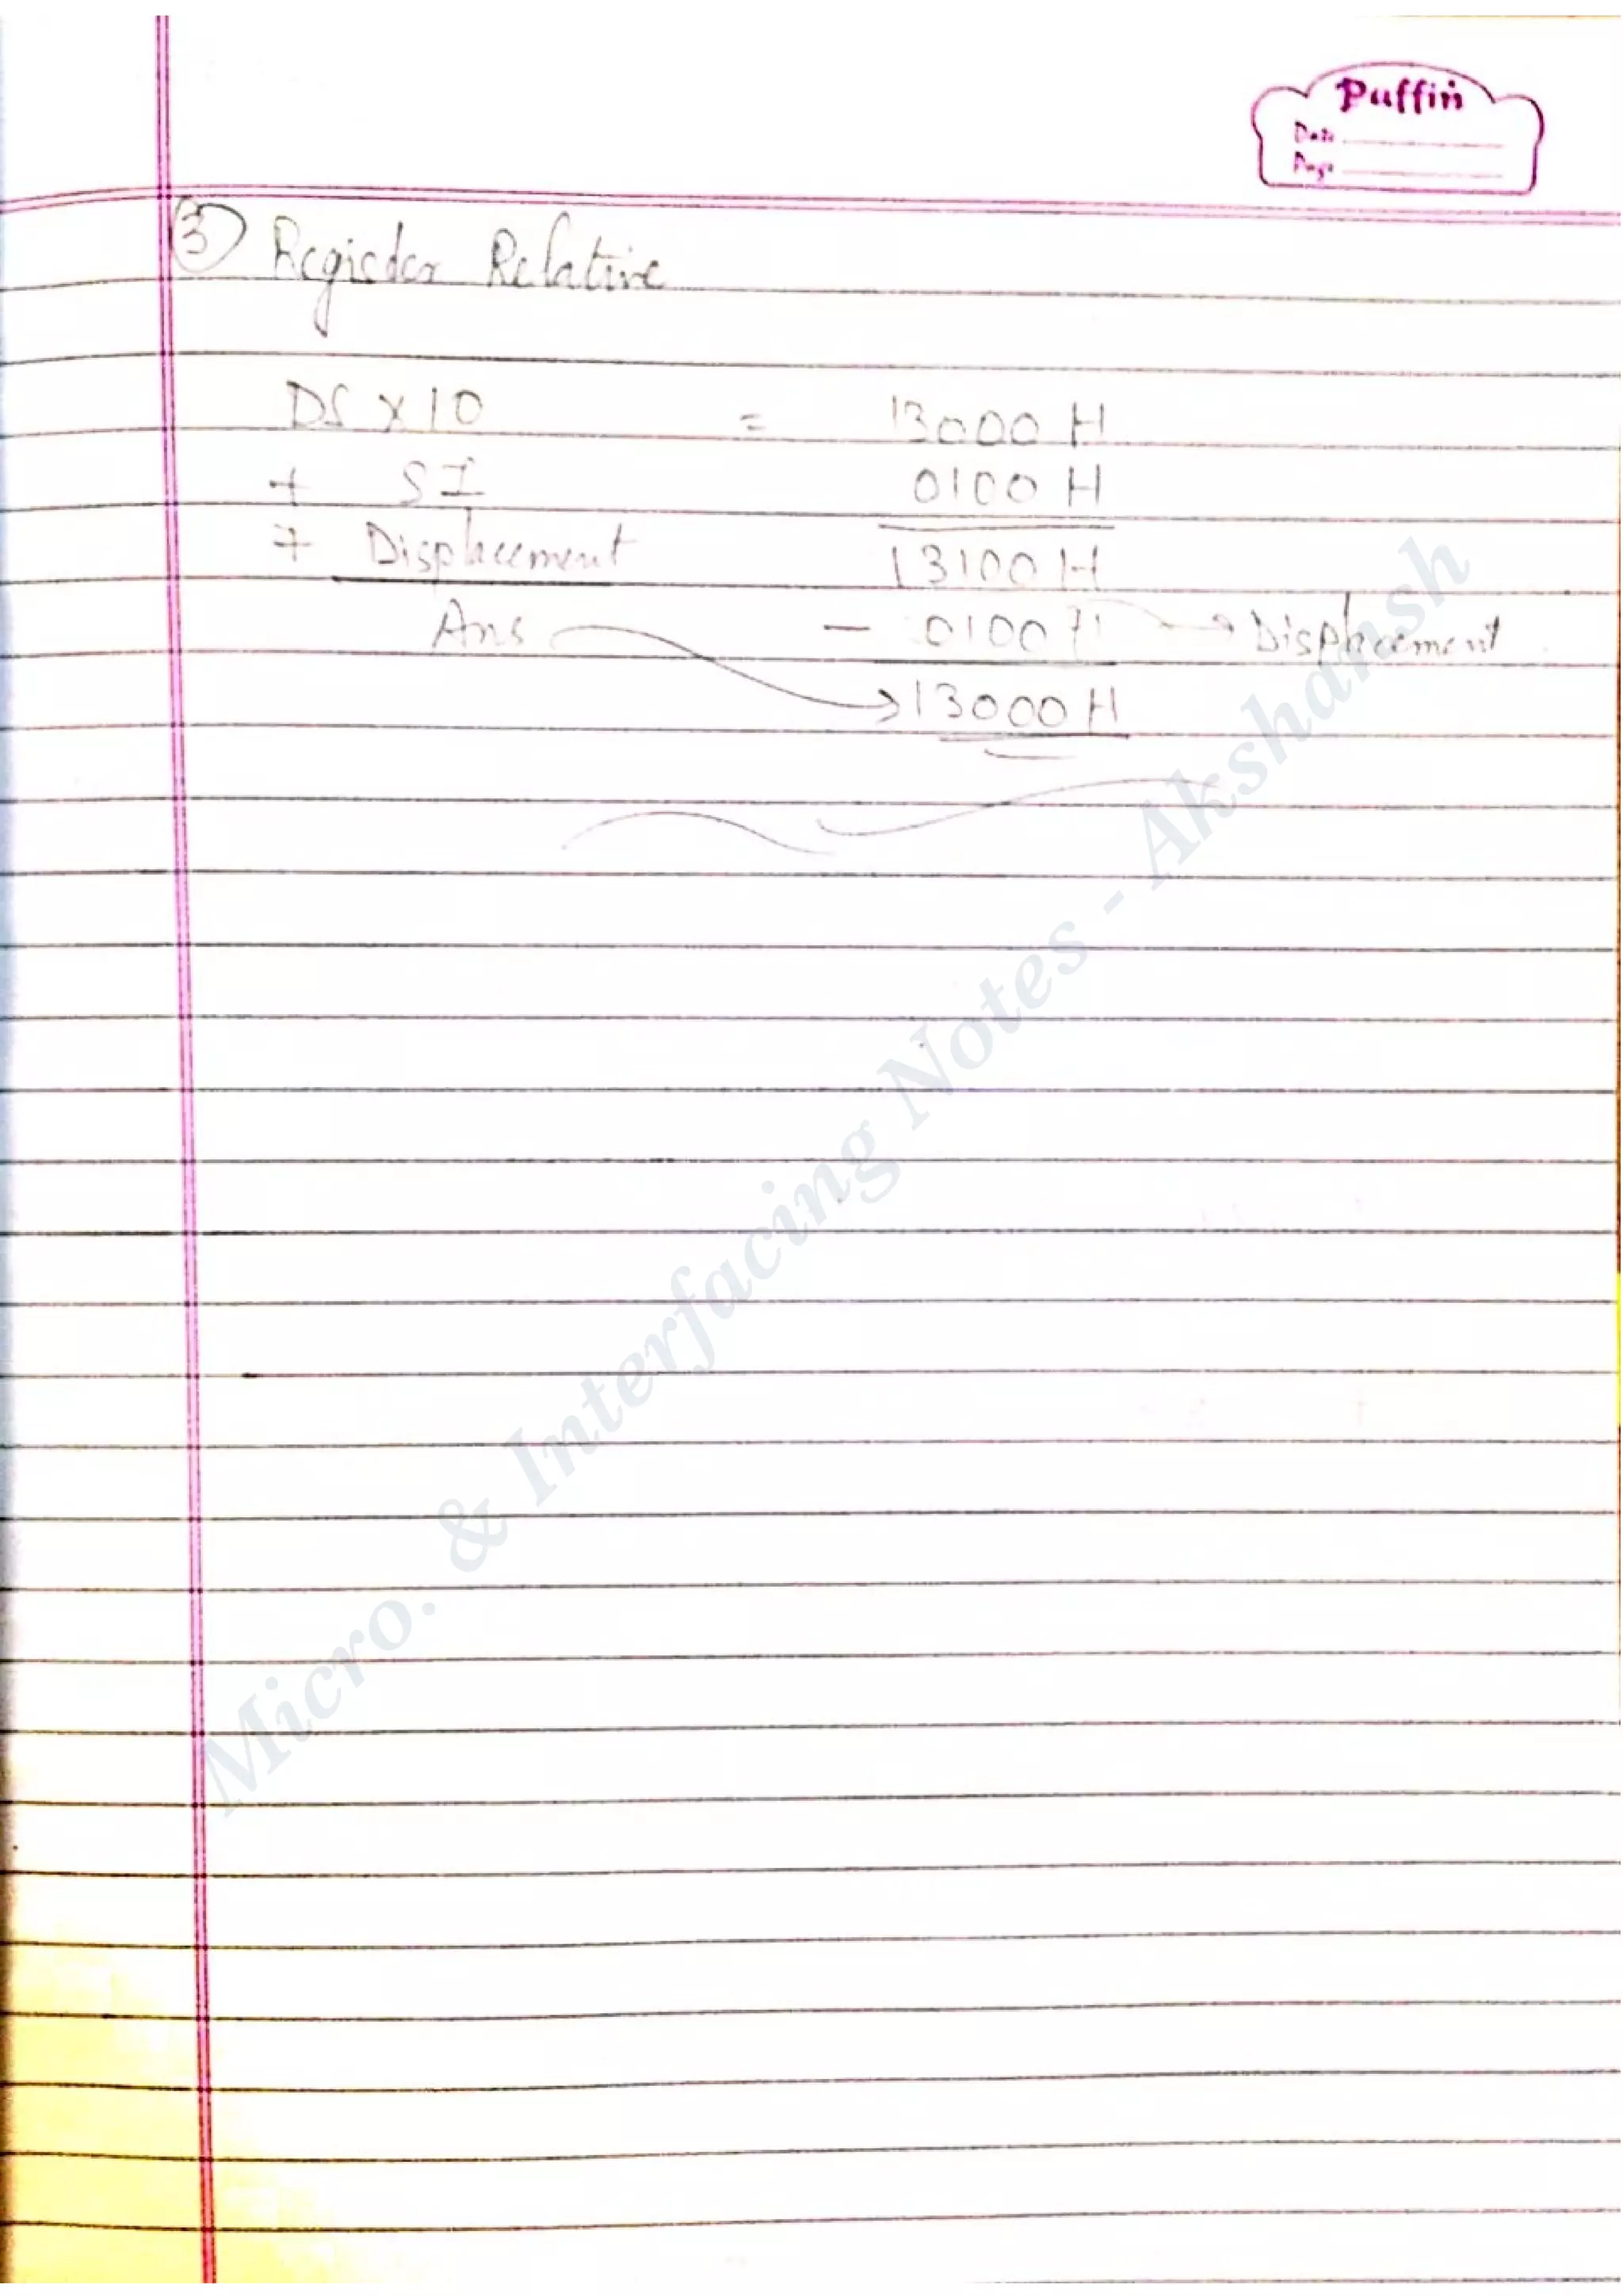 Puffin
Date
Page
③ Register Relative
DS × 10 = 13000 H
+ SI 0100 H
+ Displacement 13100 H
Ans - 0100 H → Displacement
→ 13000 H
Micro. & Interfacing Notes - Akshansh